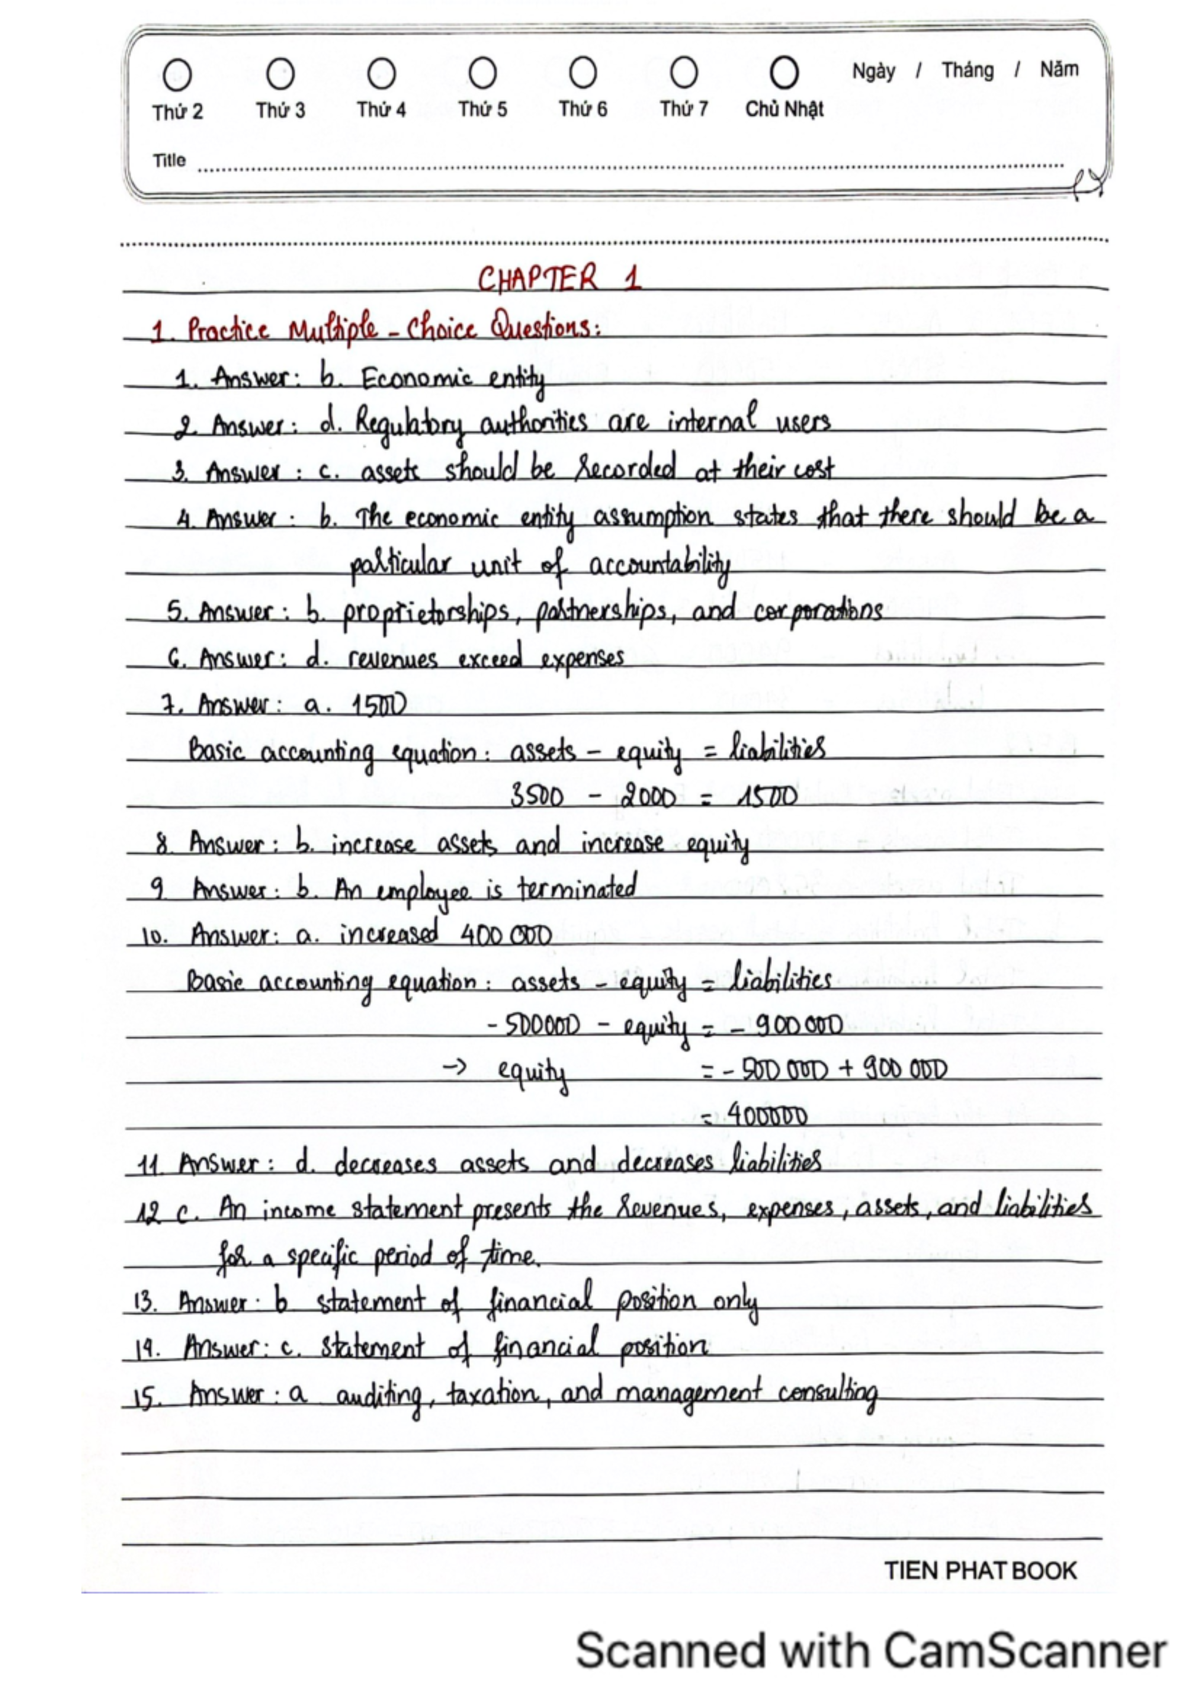 Thứ 2 Thứ 3 Thứ 4 Thứ 5 Thứ 6 Thứ 7 Chủ Nhật Ngày / Tháng / Năm
Title
CHAPTER 1
1. Practice Multiple - Choice Questions:
1. Answer: b. Economic entity
2. Answer: d. Regulatory authorities are internal users
3. Answer: c. assets should be recorded at their cost
4. Answer: b. The economic entity assumption states that there should be a
particular unit of accountability
5. Answer: b. proprietorships, partnerships, and corporations
6. Answer: d. revenues exceed expenses
7. Answer: a. 1500
Basic accounting equation: assets - equity = liabilities
3500 - 2000 = 1500
8. Answer: b. increase assets and increase equity
9 Answer: b. An employee is terminated
10. Answer: a. increased 400 000
Basic accounting equation: assets - equity = liabilities
- 500000 - equity = - 900 000
-> equity = - 500 000 + 900 000
= 400000
11. Answer: d. decreases assets and decreases liabilities
12 c. An income statement presents the revenues, expenses, assets, and liabilities
for a specific period of time.
13. Answer: b statement of financial position only
14. Answer: c. statement of financial position
15. Answer: a auditing, taxation, and management consulting
TIEN PHAT BOOK
Scanned with CamScanner